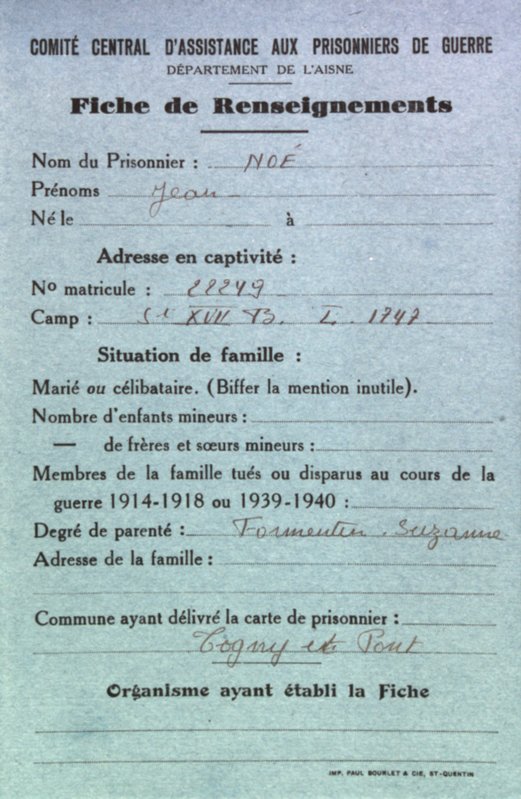 COMITÉ CENTRAL D'ASSISTANCE AUX PRISONNIERS DE GUERRE
DÉPARTEMENT DE L'AISNE
Fiche de Renseignements
Nom du Prisonnier : NOÉ
Prénoms Jean
Né le à
Adresse en captivité :
No matricule : 22249
Camp : St XVII B. I. 1747
Situation de famille :
Marié ou célibataire. (Biffer la mention inutile).
Nombre d'enfants mineurs :
— de frères et sœurs mineurs :
Membres de la famille tués ou disparus au cours de la
guerre 1914-1918 ou 1939-1940 :
Degré de parenté : Formentin. Suzanne
Adresse de la famille :
Commune ayant délivré la carte de prisonnier :
Togny et Pont
Organisme ayant établi la Fiche
IMP. PAUL BOURLET & CIE, ST-QUENTIN